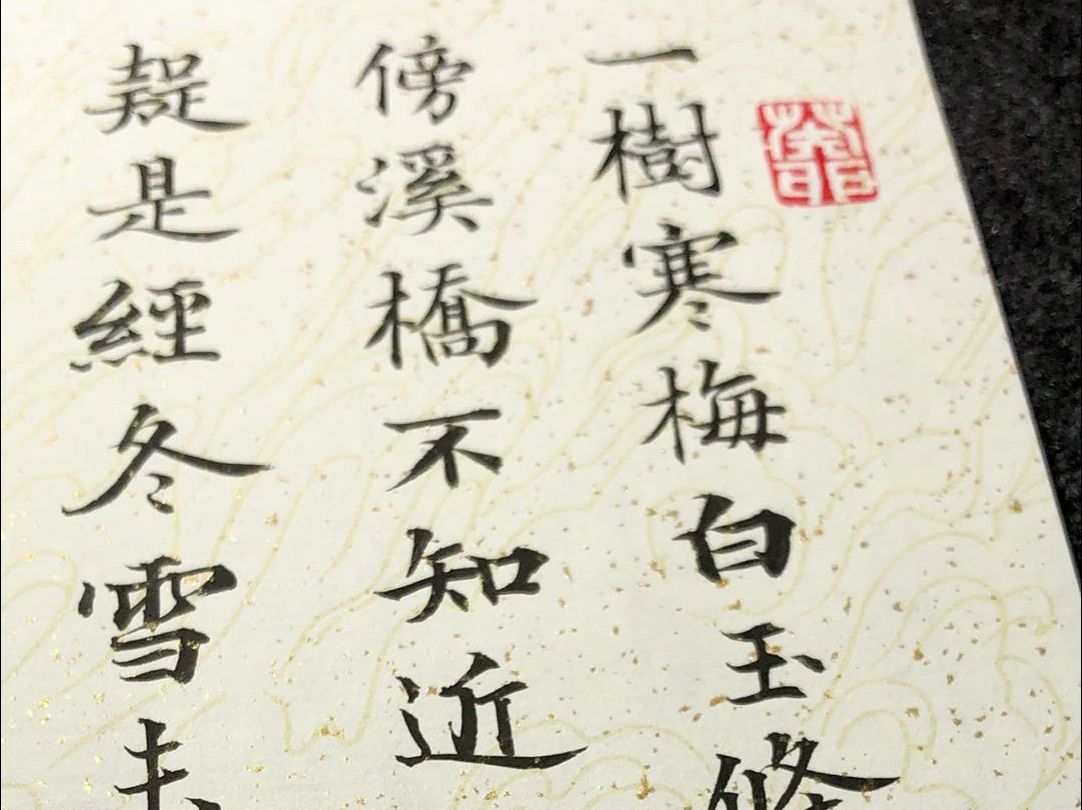 一樹寒梅白玉條
傍溪橋不知近
疑是經冬雪未